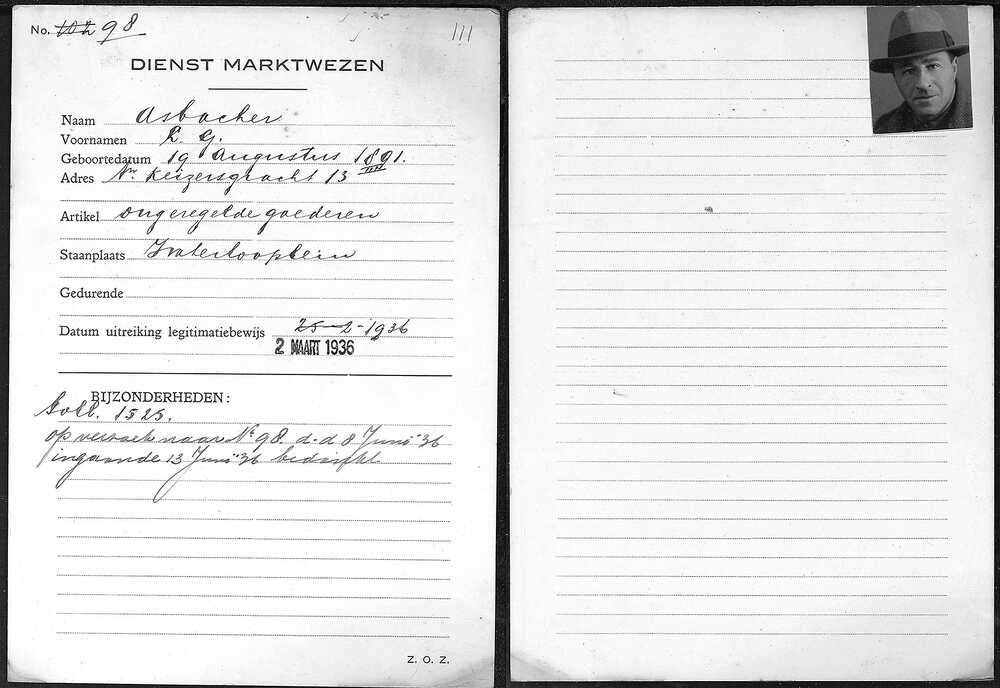 No. 102 98
111
DIENST MARKTWEZEN
Naam Asbacher
Voornamen L. G.
Geboortedatum 19 Augustus 1891.
Adres Nw Keizersgracht 13
Artikel ongeregelde goederen
Staanplaats Waterlooplein
Gedurende
Datum uitreiking legitimatiebewijs 25-2-1936
2 MAART 1936
BIJZONDERHEDEN:
Soll. 1525.
op verzoek naar No 98. d.d 8 Juni '36
ingaande 13 Juni '36
Z. O. Z.